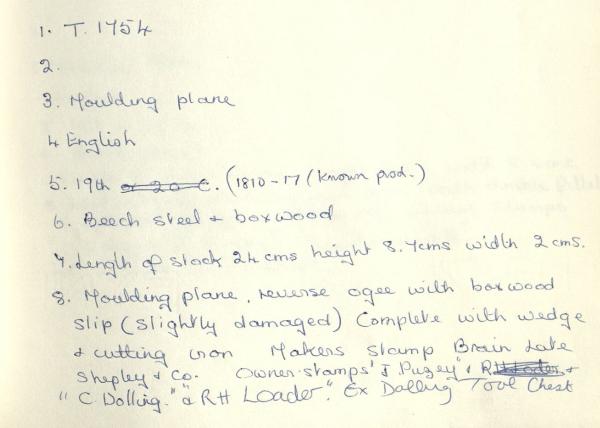 1. T. 1754
2.
3. Moulding plane
4 English
5. 19th or 20 C. (1810-17 (known prod.)
6. Beech steel & boxwood
7. Length of stock 24 cms height 8.7cms width 2 cms.
8. Moulding plane, reverse ogee with boxwood
slip (slightly damaged) Complete with wedge
& cutting iron Makers stamp Brain Late
Shepley & Co. Owner-stamps "J Pugey" & RH Loader &
"C Dolling." & "RH Loader". Ex Dalling Tool Chest